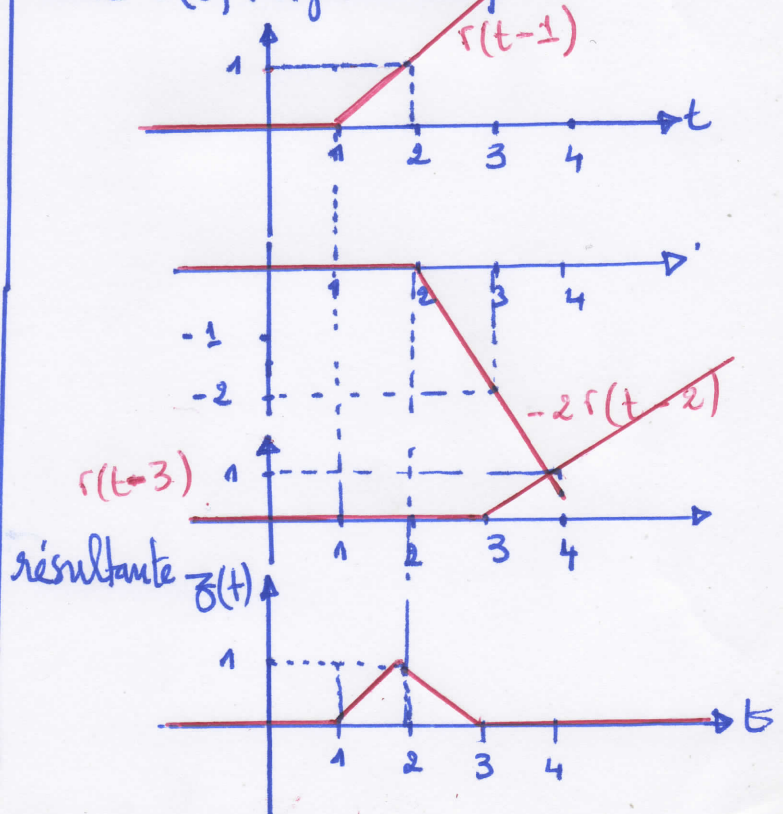 r(t-1)
1
t
1 2 3 4
1 2 3 4
-1
-2
-2r(t-2)
1
r(t-3)
1 2 3 4
résultante z(t)
1
t
1 2 3 4